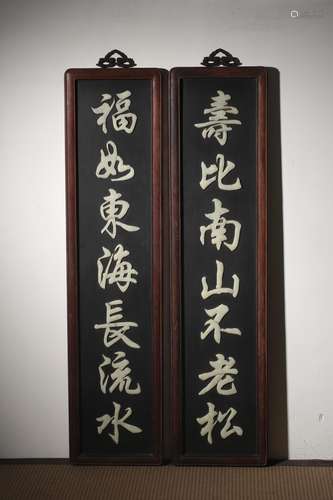 壽比南山不老松
福如東海長流水